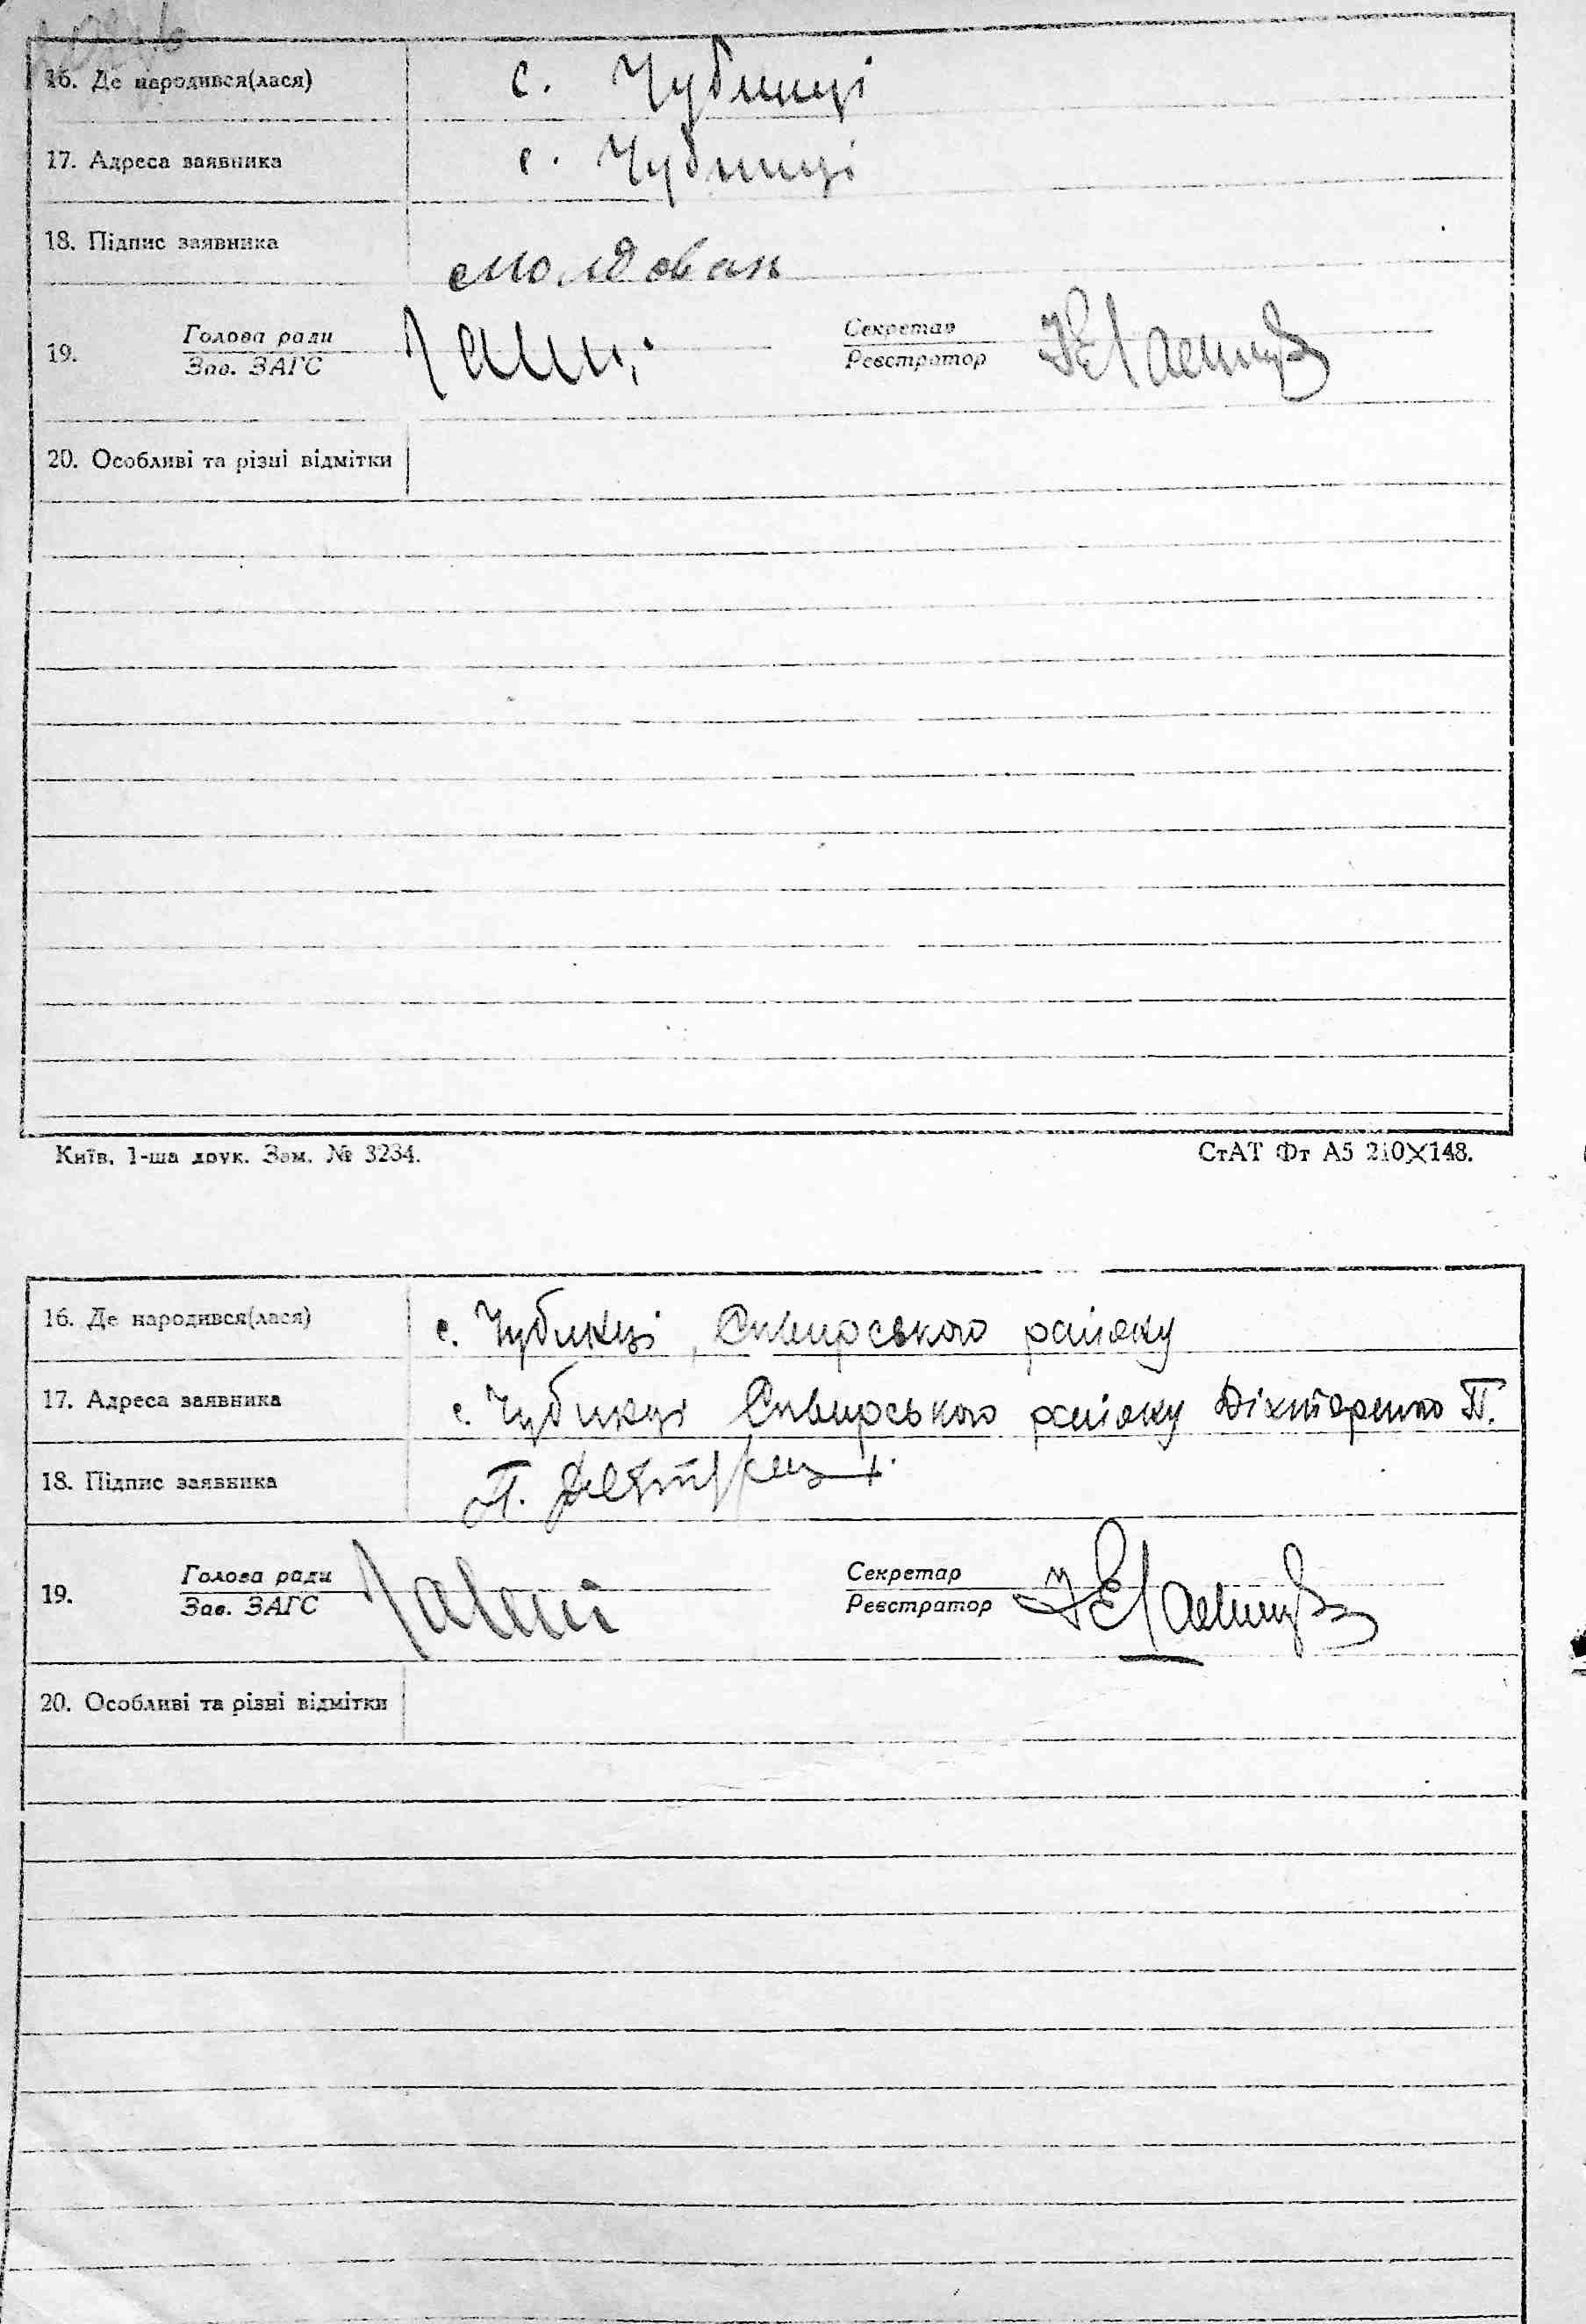 16. Де народився(лася) с. Чубинці
17. Адреса заявника с. Чубинці
18. Підпис заявника Молдован
19. Голова ради Секретар
Зав. ЗАГС Реєстратор
20. Особливі та різні відмітки
Київ, 1-ша друк. Зам. № 3234. СтАТ Фт А5 210×148.
16. Де народився(лася) с. Чубинці, Сквирського району
17. Адреса заявника с. Чубинці Сквирського району Дікттаренко П.
18. Підпис заявника П.
19. Голова ради Секретар
Зав. ЗАГС Реєстратор
20. Особливі та різні відмітки